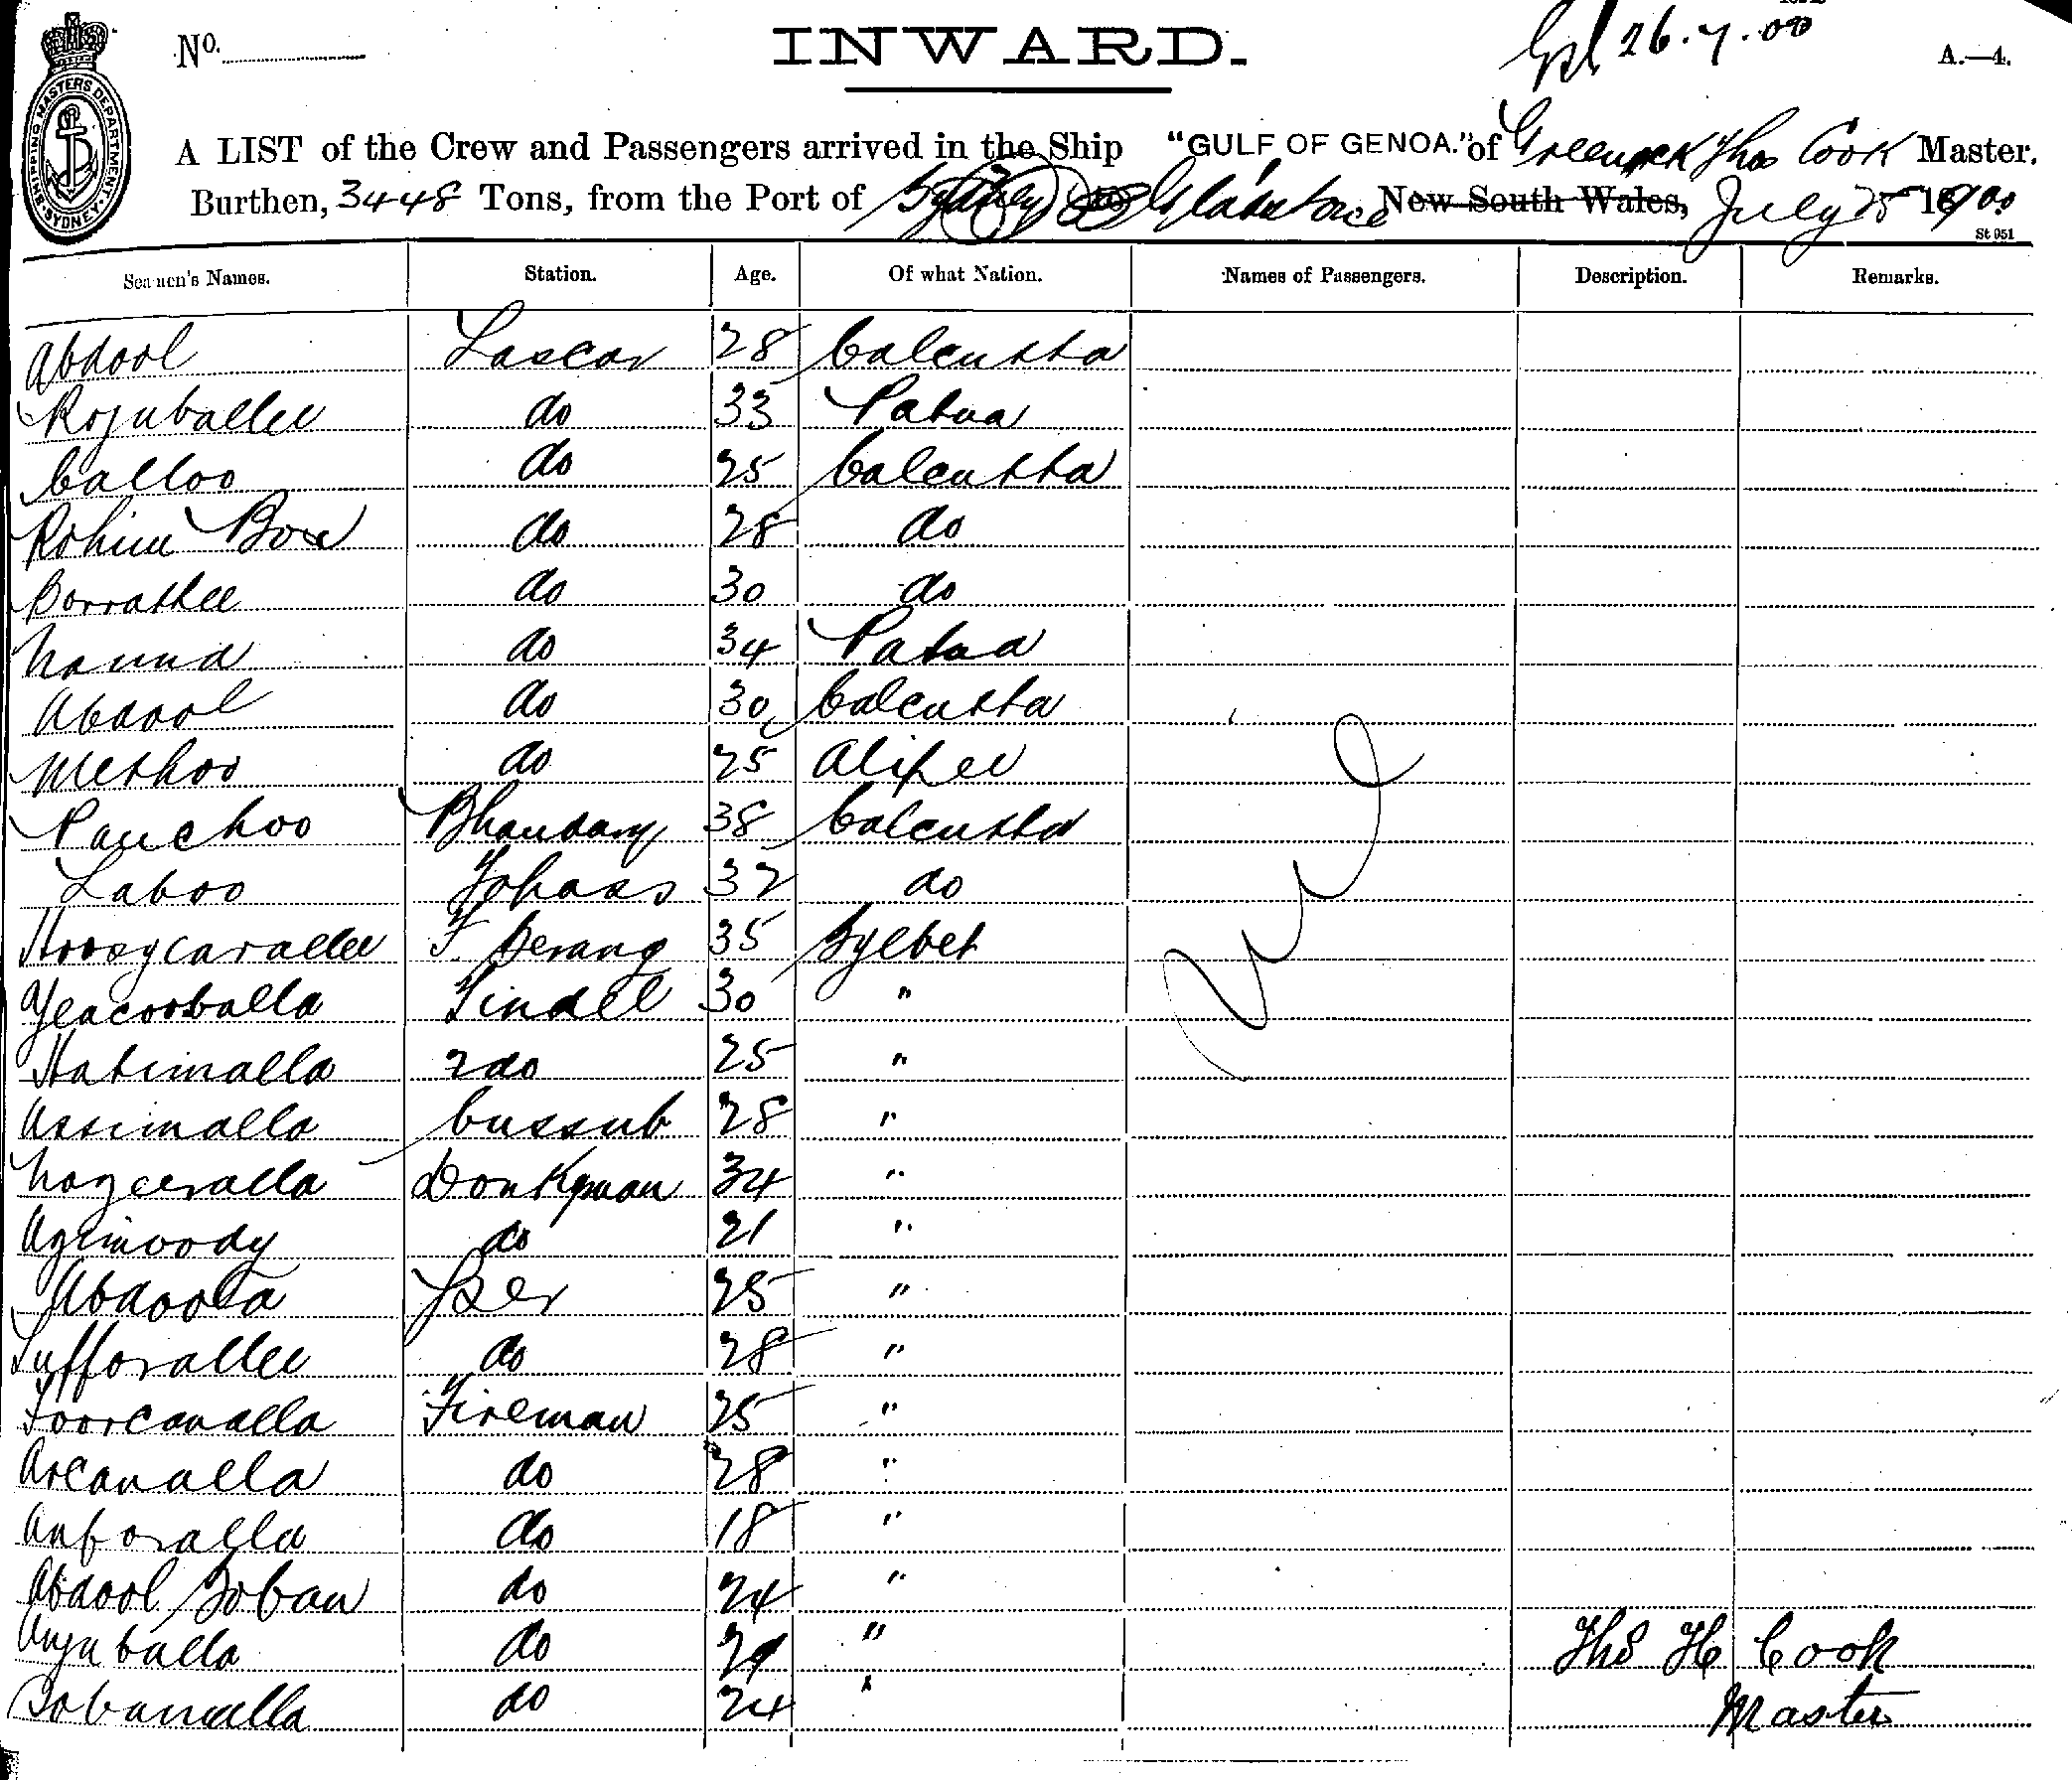 No.
INWARD.
26.7.00
A.—4.
SHIPPING MASTERS DEPARTMENT SYDNEY
A LIST of the Crew and Passengers arrived in the Ship "GULF OF GENOA." of Greenock Thos Cook Master.
Burthen, 3448 Tons, from the Port of Gladstone New South Wales, July 25 1900
St 951
Seamen's Names. Station. Age. Of what Nation. Names of Passengers. Description. Remarks.
Abdool Lascar 28 Calcutta
Rojuballee do 33 Patna
Calloo do 25 Calcutta
Rohim Box do 28 do
Borrathee do 30 do
Nanna do 34 Patna
Abdool do 30 Calcutta
Methoo do 25 Alipee
Panchoo Bhandary 38 Calcutta
Laboo Tohaas 32 do
Hoosycarallee F. Serang 35 Sylbet
Yeacoobballa Tindel 30 "
Hatimalla 2 do 25 "
Assimalla Cussub 28 "
Nazeeralla Donkyman 34 "
Azimoody do 21 "
Abdoola 25 "
Sufforallee do 28 "
Toorcanalla Fireman 25 "
Arcanalla do 28 "
Anforalla do 18 "
Abdool Soban do 24 "
Anjuballa do "
Sobanralla do 24 "
Thos H Cook
Master